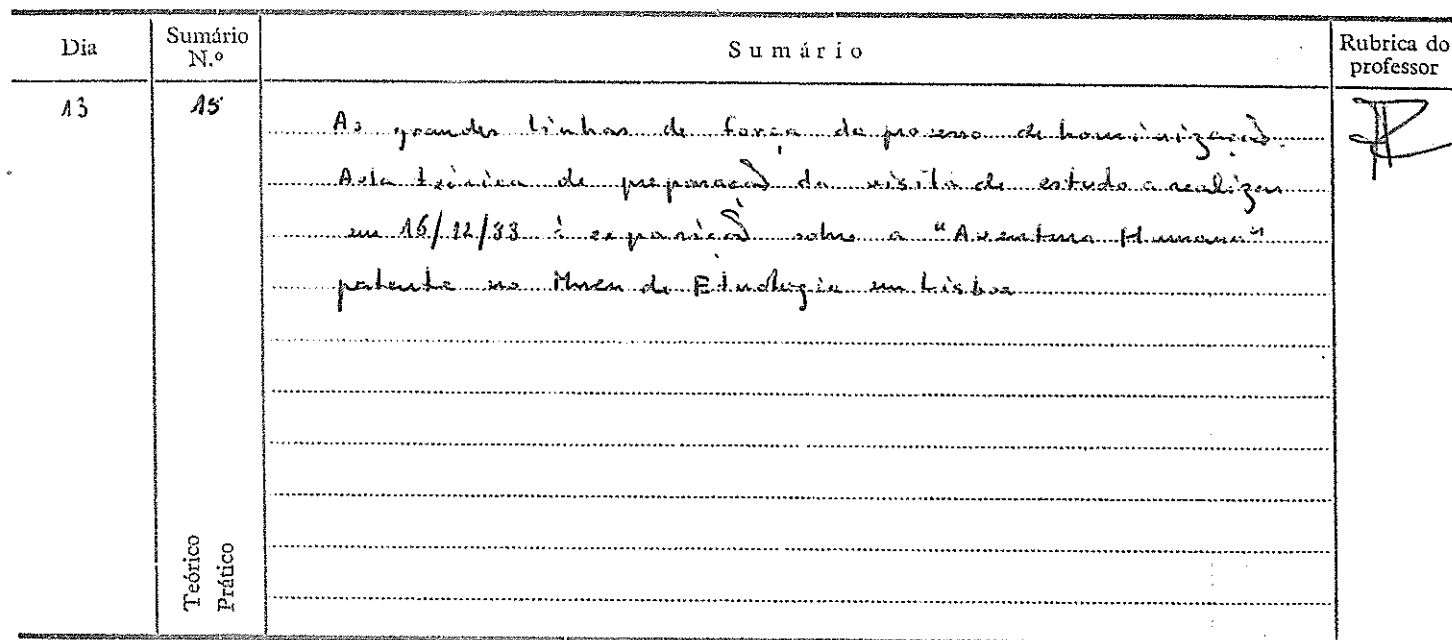 Dia Sumário N.º Sumário Rubrica do professor
13 15 As grandes linhas de força do processo de hominização.
Aula teórica de preparação da visita de estudo a realizar
em 16/12/83 à exposição sobre a "Aventura Humana"
patente no Museu de Etnologia em Lisboa
Teórico
Prático